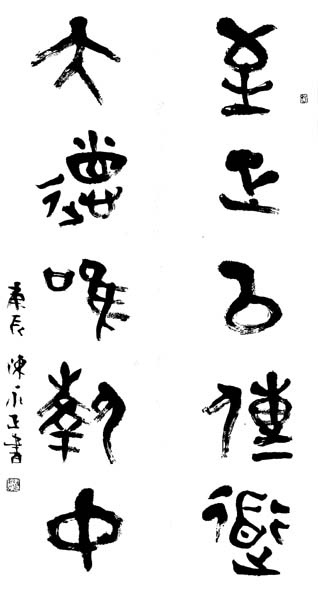 至正傳道
大德唯執中
庚辰 陳永正書